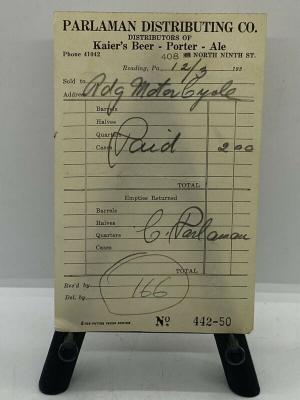 PARLAMAN DISTRIBUTING CO.
DISTRIBUTORS OF
Kaier's Beer - Porter - Ale
Phone 41042 408 NORTH NINTH ST.
Reading, Pa. 12/3 193
Sold to Rdg Motor Cycle
Address
Barrels
Halves
Quarters
Cases Paid 2 00
TOTAL
Empties Returned
Barrels
Halves
Quarters C. Parlaman
Cases
TOTAL
Rec'd by
Del. by 166
No 442-50